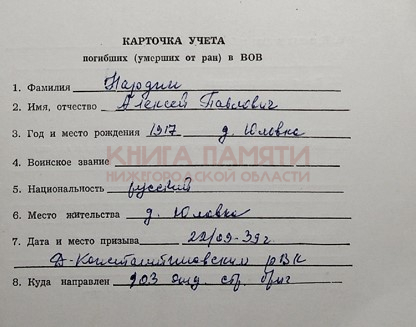 КАРТОЧКА УЧЕТА
погибших (умерших от ран) в ВОВ
1. Фамилия Нардин
2. Имя, отчество Алексей Павлович
3. Год и место рождения 1917 д. Юловка
4. Воинское звание
КНИГА ПАМЯТИ
НИЖЕГОРОДСКОЙ ОБЛАСТИ
5. Национальность русский
6. Место жительства д. Юловка
7. Дата и место призыва 22/09-39г
Д-Константиновским рВК
8. Куда направлен 903 стр.